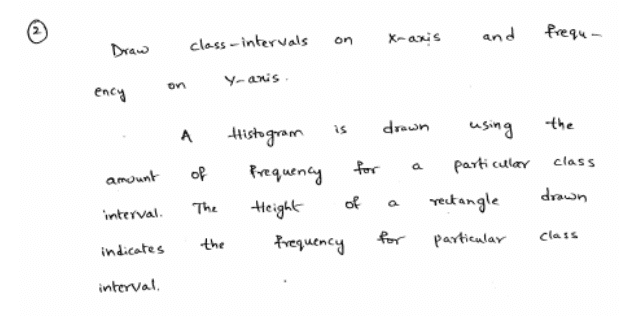 ②
Draw class-intervals on X-axis and frequ-
ency on Y-axis.
A Histogram is drawn using the
amount of frequency for a particular class
interval. The Height of a rectangle drawn
indicates the frequency for particular class
interval.